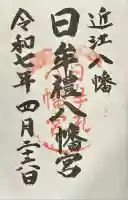 近江八幡
日牟禮八幡宮
令和七年四月二十六日